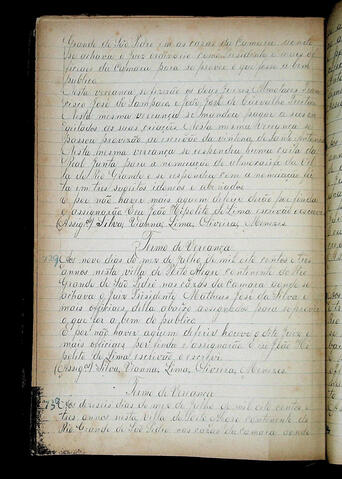 Grande de São Pedro em as cazas da Camara donde
se achava o Juiz ordinario como Prezidente e mais of-
ficiaes da Camara para se prover o que fosse a bem
publico
Nesta veriança se fizerão os dois Juizes Almotaces Fran-
cisco José de Sampaio e João José de Carvalho Freitas
Nesta mesma veriança se mandou pagar a
geitados as suas criações Nesta mesma veriança se
passou provizão ao escrivão da vintena de Santo Antonio
Nesta mesma veriança se respondeu huma carta da
Real Junta para a nomeação de almoxarife da Vi-
la do Rio Grande e se respondeu com a nomeação fei-
ta em tres sugeitos idonios e abonados
E por não haver mais aquem deferir derão por finda
e assignarão Eu João Hipolito de Lima escrivão o escrevi
(Assig.) Silva, Vianna, Lima, Oliveira, Menezes
Termo de Veriança
Aos nove dias do mez de Julho de mil oito centos e tres
annos nesta villa de Porto Alegre continente do Rio
Grande de São Pedro nas cazas da Camara donde se
achava o Juiz Prezidente Matheus José da Silva e
mais officiaes della abaixo assignados para se prover
o que for a bem do publico
E por não haver aquem deferir houve o dito Juiz e
mais officiaes por finda e assignarão Eu João Hi-
polito de Lima escrivão o escrevi
(Assig.) Silva, Vianna, Lima, Oliveira, Menezes
Termo de Veriança
Aos dezeseis dias do mez de Julho de mil oito centos e
tres annos nesta Villa de Porto Alegre Continente do
Rio Grande de São Pedro nas cazas da Camara donde